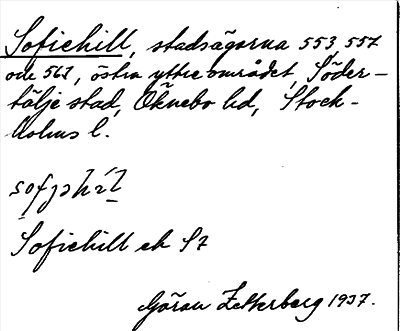 Sofiehill, stadsägorna 553, 557
och 561, östra yttre området, Söder-
tälje stad, Öknebo hd, Stock-
holms l.
Sofiehill ek S7
Göran Zetterberg 1937.